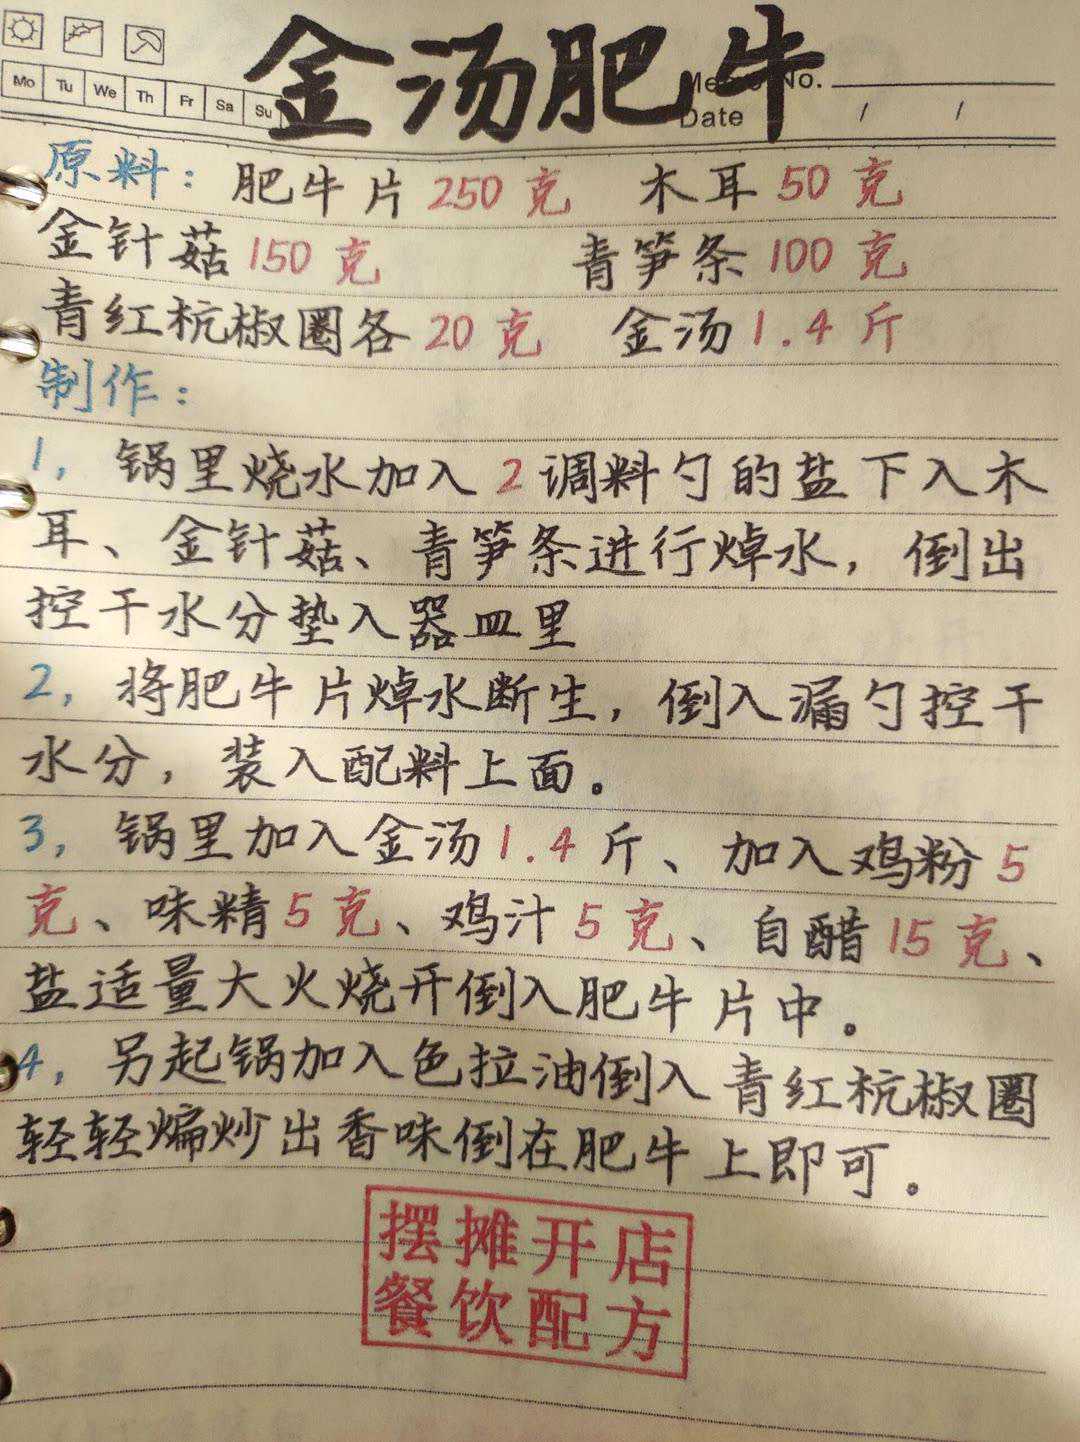 金汤肥牛
Memo No.
Mo Tu We Th Fr Sa Su
Date / /
原料：肥牛片250克 木耳50克
金针菇150克 青笋条100克
青红杭椒圈各20克 金汤1.4斤
制作：
1，锅里烧水加入2调料勺的盐下入木
耳、金针菇、青笋条进行焯水，倒出
控干水分垫入器皿里
2，将肥牛片焯水断生，倒入漏勺控干
水分，装入配料上面。
3，锅里加入金汤1.4斤、加入鸡粉5
克、味精5克、鸡汁5克、自醋15克、
盐适量大火烧开倒入肥牛片中。
4，另起锅加入色拉油倒入青红杭椒圈
轻轻煸炒出香味倒在肥牛上即可。
摆摊开店
餐饮配方